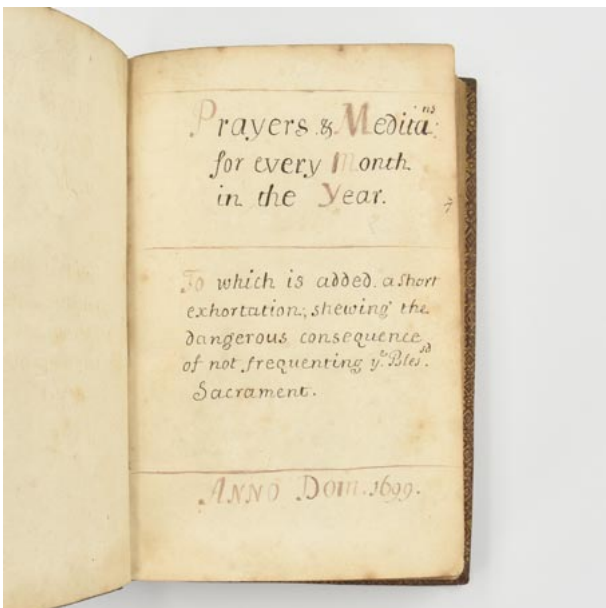 Prayers & Meditans:
for every Month
in the Year.
To which is added. a short
exhortation; shewing the
dangerous consequence
of not frequenting ye. Blessd.
Sacrament.
ANNO Dom. 1699.